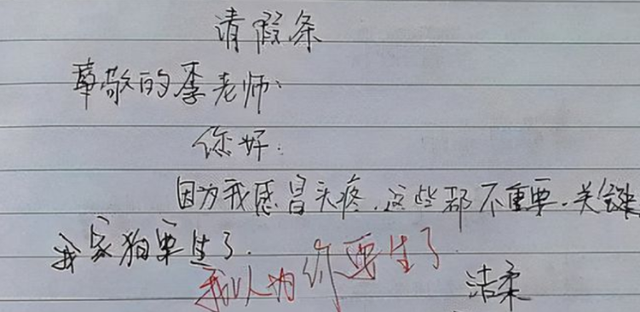 请假条
尊敬的李老师:
你好:
因为我感冒头疼.这些都不重要.关键
我家狗要生了.
我以为你要生了
洁柔